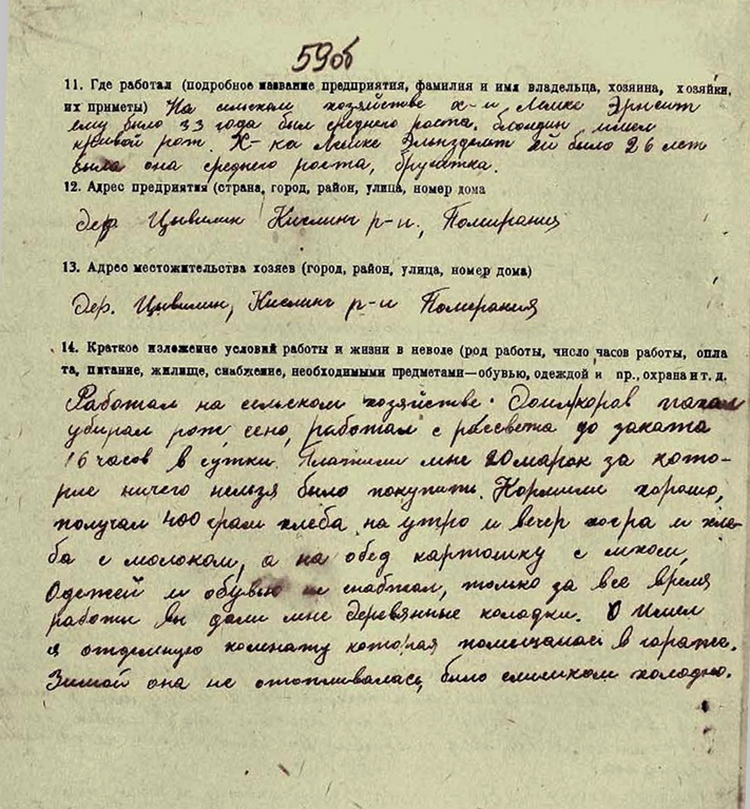 59об
11. Где работал (подробное название предприятия, фамилия и имя владельца, хозяина, хозяйки,
их приметы) На сельском хозяйстве х-н Лемке Эрнст
ему было 33 года был среднего роста, блондин имел
кривой рот. Х-ка Лемке ей было 26 лет
была она среднего роста,
12. Адрес предприятия (страна, город, район, улица, номер дома
дер Цывилин Кислинг р-н, Помирания
13. Адрес местожительства хозяев (город, район, улица, номер дома)
Дер. Цывилин, Кислинг р-н Померания
14. Краткое изложение условий работы и жизни в неволе (род работы, число часов работы, опла
та, питание, жилище, снабжение, необходимыми предметами—обувью, одеждой и пр., охрана и т. д.
Работал на сельском хозяйстве. Доил коров пахал
убирал рож, сено, работал с рассвета до заката
16 часов в сутки. Платили мне 20 марок за кото-
рые ничего нельзя было покупить. Кормили хорошо,
получал 400 грам хлеба на утро и вечер и хле-
ба с молоком, а на обед картошку с мясом,
Одежей и обувью не снабжал, только за все время
работы вы дали мне деревянные колодки. Имел
я отдельную комнату которая помещалась в гараже.
Зимой она не отопливалась, было слишком холодно.